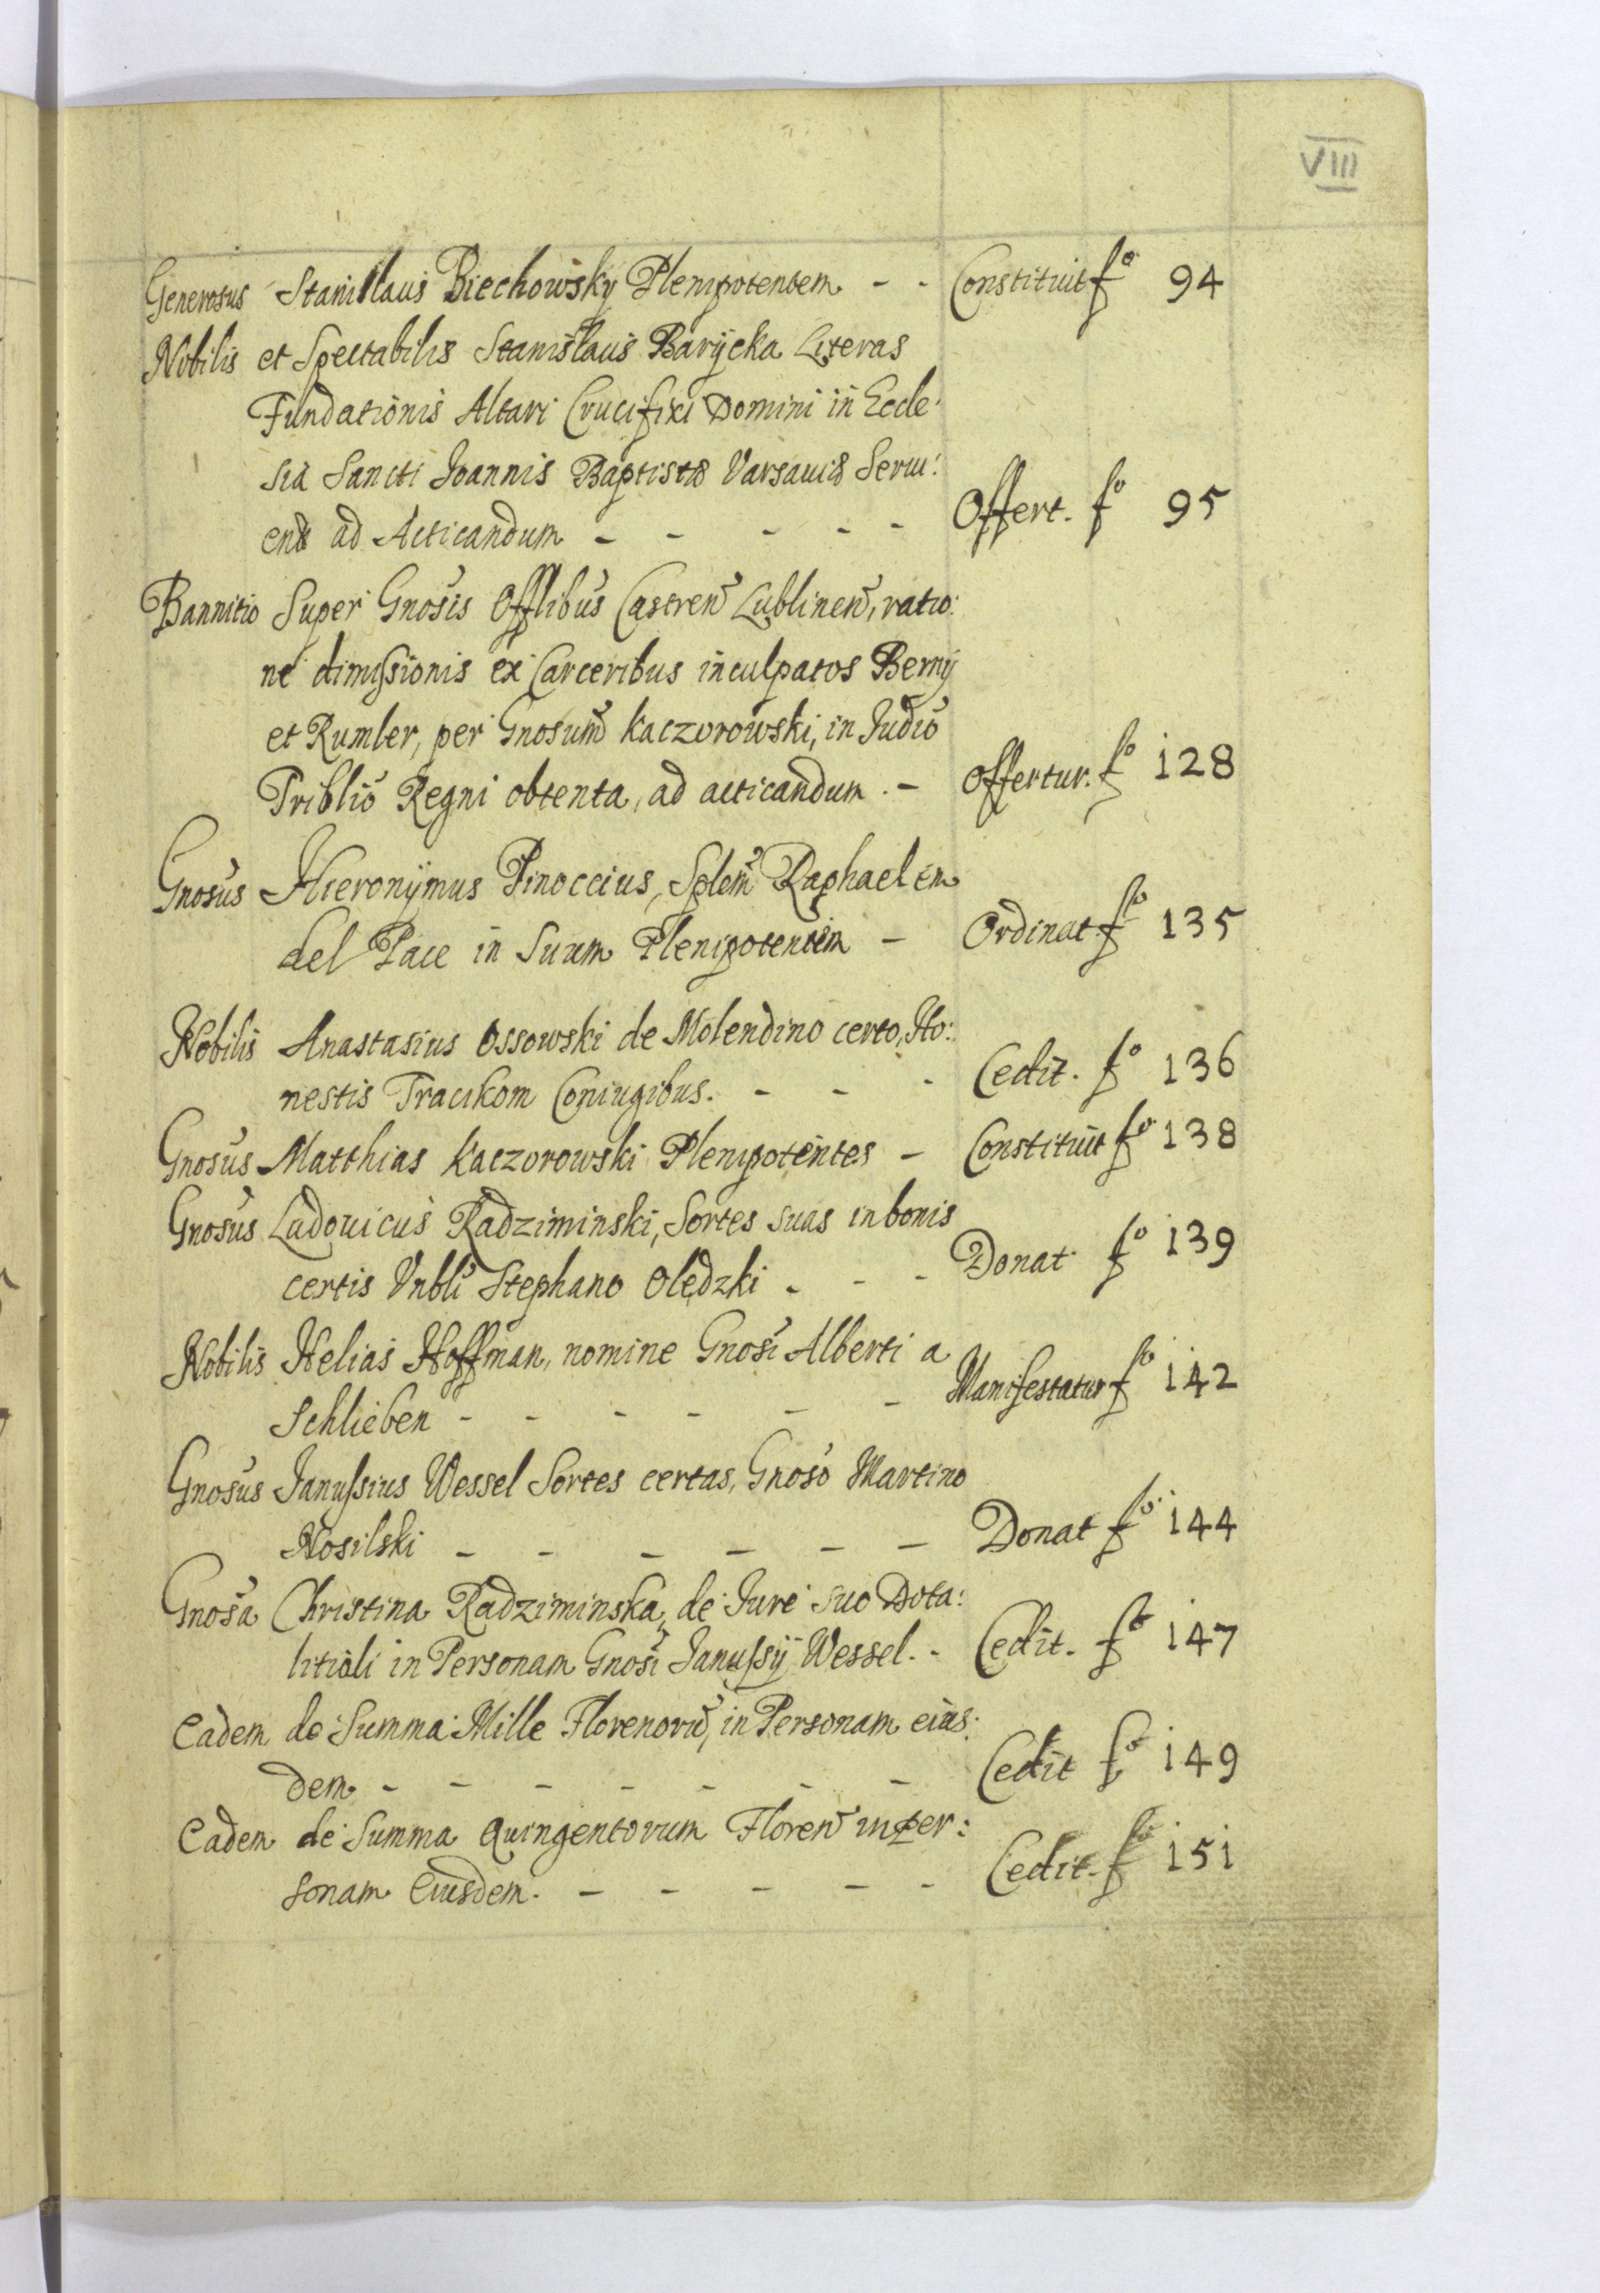 VIII
Generosus Stanislaus Biechowsky Plenipotentem - - Constituit fo 94
Nobilis et Spectabilis Stanislaus Barÿcka Literas
Fundationis Altari Crucifixi Domini in Eccle:
sia Sancti Joannis Baptistæ Varsaviæ Servi:
ens ad Acticandum - - - - - Offert. fo 95
Bannitio Super Gnosis Offlibus Castren Lublinen, ratio:
ne dimissionis ex Carceribus inculpatos Berny
et Rumler, per Gnosum Kaczorowski, in Judio
Triblio Regni obtenta, ad acticandum. - Offertur. fo 128
Gnosus Hieronÿmus Pinoccius, Splem Raphaelem
del Pace in Suum Plenipotentem - Ordinat fo 135
Nobilis Anastasius Ossowski de Molendino certo, Ho:
nestis Tracikom Coniugibus. - - - Cedit. fo 136
Gnosus Matthias Kaczorowski Plenipotentes - Constituit fo 138
Gnosus Ludovicus Radziminski, Sortes suas in bonis
certis Vnbli Stephano Olędzki - - - Donat fo 139
Nobilis Helias Hoffman, nomine Gnosi Alberti a
Schlieben - - - - - - Manifestatur fo 142
Gnosus Janussius Wessel Sortes certas, Gnoso Martino
Nosilski - - - - - - Donat fo 144
Gnosa Christina Radziminska, de Jure suo Dota:
litiali in Personam Gnosi Janussÿ Wessel. - Cedit. fo 147
Eadem de Summa Mille Florenoru, in Personam eius:
dem - - - - - - - Cedit fo 149
Eadem de Summa Quingentorum Floren in per:
sonam Eiusdem. - - - - - Cedit. fo 151